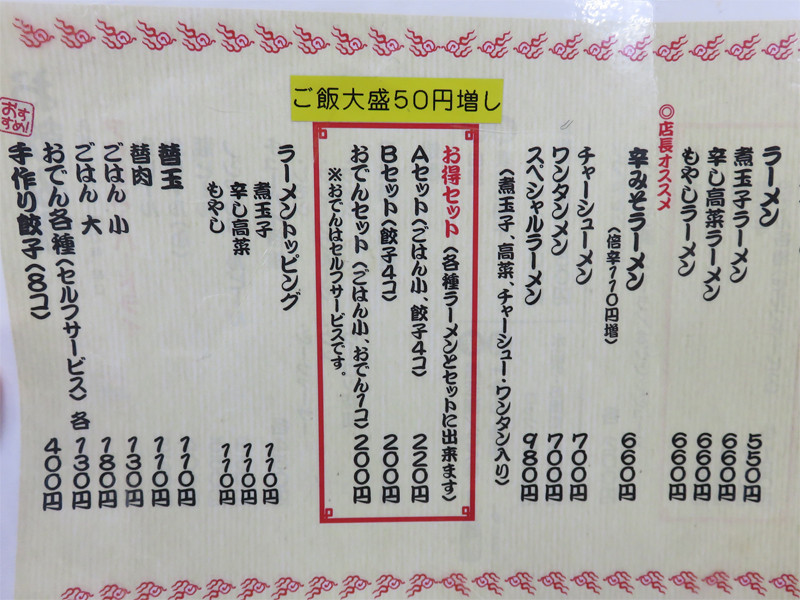 ご飯大盛50円増し
ラーメン 550円
煮玉子ラーメン 660円
辛し高菜ラーメン 660円
もやしラーメン 660円
◎店長オススメ
辛みそラーメン 660円
(倍辛110円増)
チャーシューメン 700円
ワンタンメン 700円
スペシャルラーメン 980円
(煮玉子、高菜、チャーシュー・ワンタン入り)
お得セット(各種ラーメンとセットに出来ます)
Aセット(ごはん小、餃子4コ) 220円
Bセット(餃子4コ) 200円
おでんセット(ごはん小、おでん1コ) 200円
※おでんはセルフサービスです。
ラーメントッピング
煮玉子 110円
辛し高菜 110円
もやし 110円
替玉 110円
替肉 110円
ごはん 小 130円
ごはん 大 180円
おでん各種(セルフサービス) 各130円
おすすめ!
手作り餃子(8コ) 400円